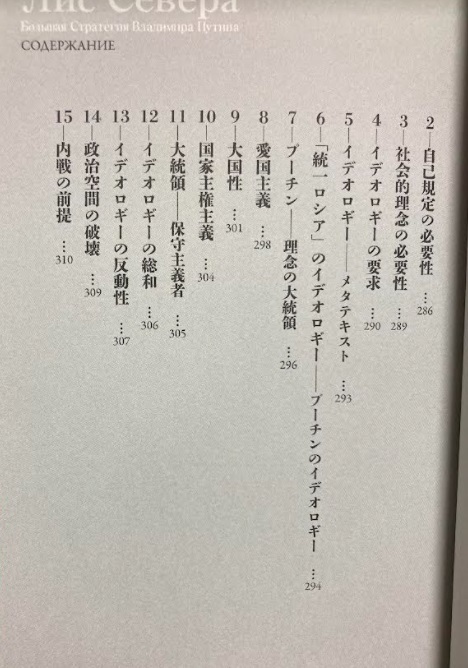 Лис Севера
Большая Стратегия Владимира Путина
СОДЕРЖАНИЕ
2―自己規定の必要性 …286
3―社会的理念の必要性 …289
4―イデオロギーの要求 …290
5―イデオロギー――メタテキスト …293
6―「統一ロシア」のイデオロギー――プーチンのイデオロギー …294
7―プーチン――理念の大統領 …296
8―愛国主義 …298
9―大国性 …301
10―国家主権主義 …304
11―大統領――保守主義者 …305
12―イデオロギーの総和 …306
13―イデオロギーの反動性 …307
14―政治空間の破壊 …309
15―内戦の前提 …310